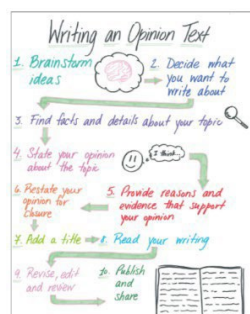 Writing an Opinion Text
1. Brainstorm
ideas
2. Decide what
you want to
write about
3. Find facts and details about your topic
4. State your opinion
about the topic
I think...
5. Provide reasons and
evidence that support
your opinion
6. Restate your
opinion for
closure
7. Add a title
8. Read your writing
9. Revise, edit
and review
10. Publish
and
share